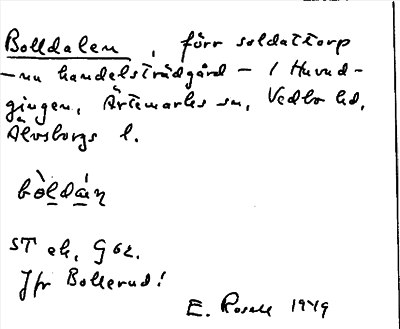 Bolldalen, förr soldattorp
— nu handelsträdgård — i Huvud-
gingen, Ärtemarks sn, Vedbo hd,
Älvsborgs l.
bòldán
ST ek. G 62.
Jfr Bollerud!
E. Rosell 1949